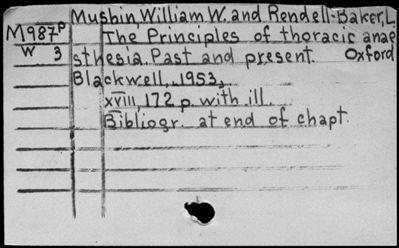 Mushin, William W. and Rendell-Baker, L.
M987p The Principles of thoracic anae
W 3 sthesia. Past and present. Oxford
Blackwell, 1953,
xviii, 172 p. with ill.
Bibliogr. at end of chapt.